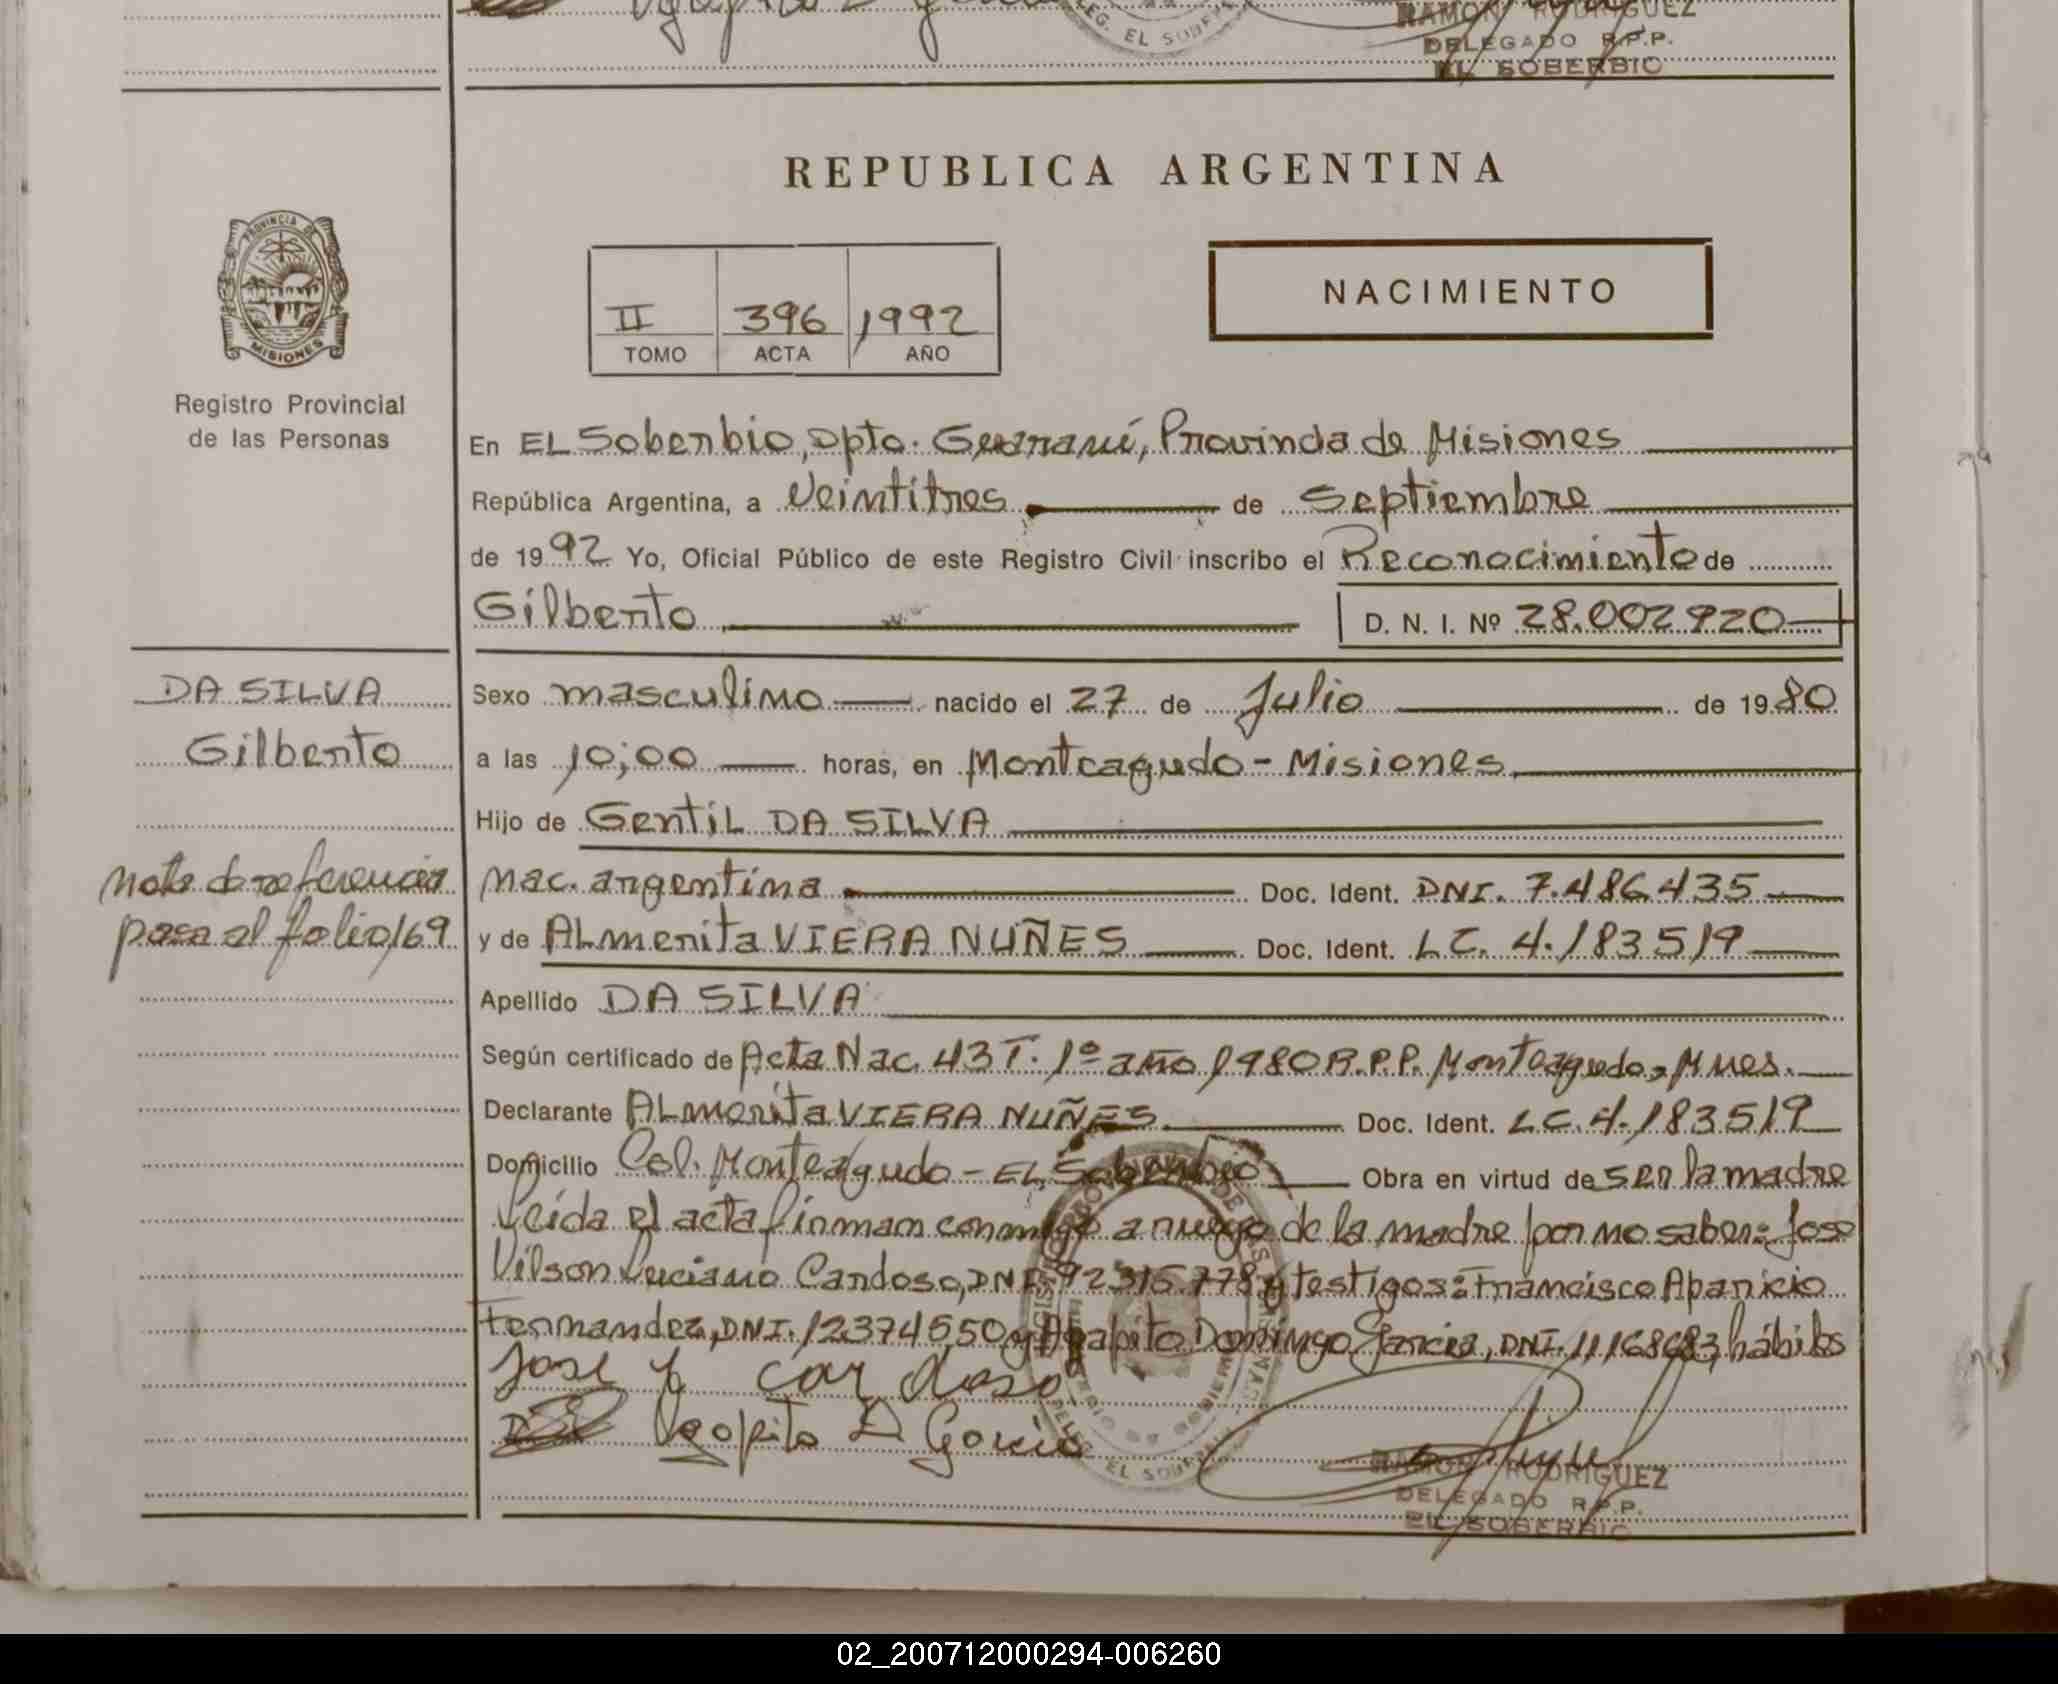 LEG. EL SOBER
RAMON RODRIGUEZ
DELEGADO R.P.P.
EL SOBERBIO
REPUBLICA ARGENTINA
PROVINCIA DE
MISIONES
Registro Provincial
de las Personas
II 396 1992
TOMO ACTA AÑO
NACIMIENTO
En EL Soberbio, Dpto. Guaraní, Provincia de Misiones
República Argentina, a Veintitres de Septiembre
de 1992 Yo, Oficial Público de este Registro Civil inscribo el Reconocimiento de
Gilberto D. N. I. Nº 28.002920
DA SILVA
Gilberto
nota de referencia
pasa al folio 169
Sexo masculino nacido el 27 de Julio de 1980
a las 10;00 horas, en Monteagudo - Misiones
Hijo de Gentil DA SILVA
nac. argentina Doc. Ident. DNI. 7.486.435
y de ALmerita VIERA NUÑES Doc. Ident. LC. 4.183519
Apellido DA SILVA
Según certificado de Acta Nac. 43 T. 1º año 1980 R.P.P. Monteagudo, Mnes.
Declarante ALmerita VIERA NUÑES Doc. Ident. LC. 4.183519
Domicilio Col. Monteagudo - EL Soberbio Obra en virtud de ser la madre
Leida el acta firman conmigo a ruego de la madre por no saber: Jose
Vilson Luciano Cardoso, DNI. 92315.778 y testigos: Francisco Aparicio
Fernandez, DNI. 12374550 y Agapito Domingo Garcia, DNI. 11168683, hábiles
Jose L Cardoso
Agapito D Garcia
EL SOBER
RAMON RODRIGUEZ
DELEGADO R.P.P.
EL SOBERBIO
02_200712000294-006260